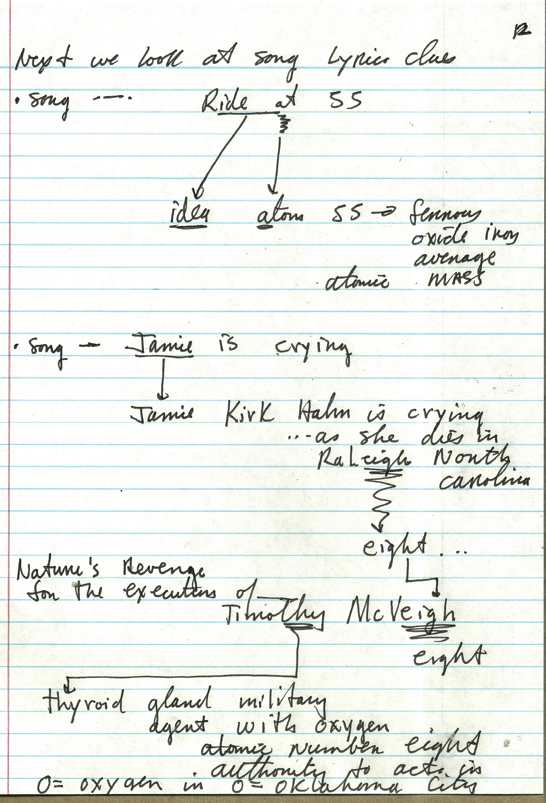 12
Next we look at song Lyrics clues
• song ---. Ride at 55
idea atom 55 → ferrous
oxide iron
average
atomic MASS
• song - Jamie is crying
Jamie Kirk Hahn is crying
...as she dies in
Raleigh North
carolina
eight ...
Nature's Revenge
for the execution of
Timothy McVeigh
eight
thyroid gland military
agent with oxygen
atomic number eight
authority to act in
O= oxygen in O= Oklahoma City